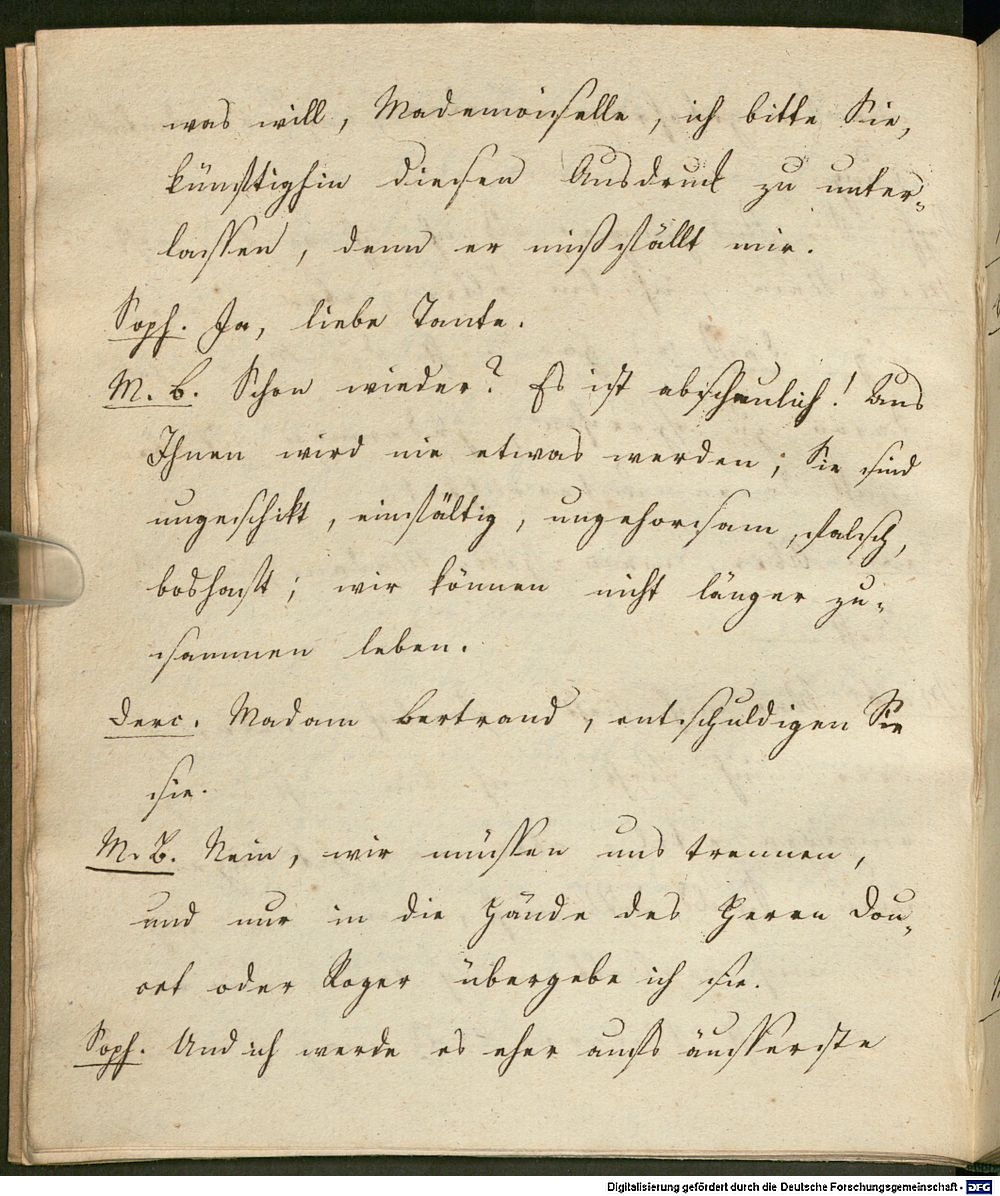 was will, Mademoiselle, ich bitte Sie,
künftighin diesen Ausdruck zu unter-
lassen, denn er mißfällt mir.
Soph. Ja, liebe Tante.
M. B. Schon wieder? Es ist abscheulich! Aus
Ihnen wird nie etwas werden; Sie sind
ungeschikt, einfältig, ungehorsam, falsch,
boshaft; wir können nicht länger zu-
sammen leben.
Derc. Madam Bertrand, entschuldigen Sie
sie.
M. B. Nein, wir müssen uns trennen,
und nur in die Hände des Herrn Dou-
ort oder Roger übergebe ich sie.
Soph. Und ich werde es eher aufs äusserste
Digitalisierung gefördert durch die Deutsche Forschungsgemeinschaft - DFG